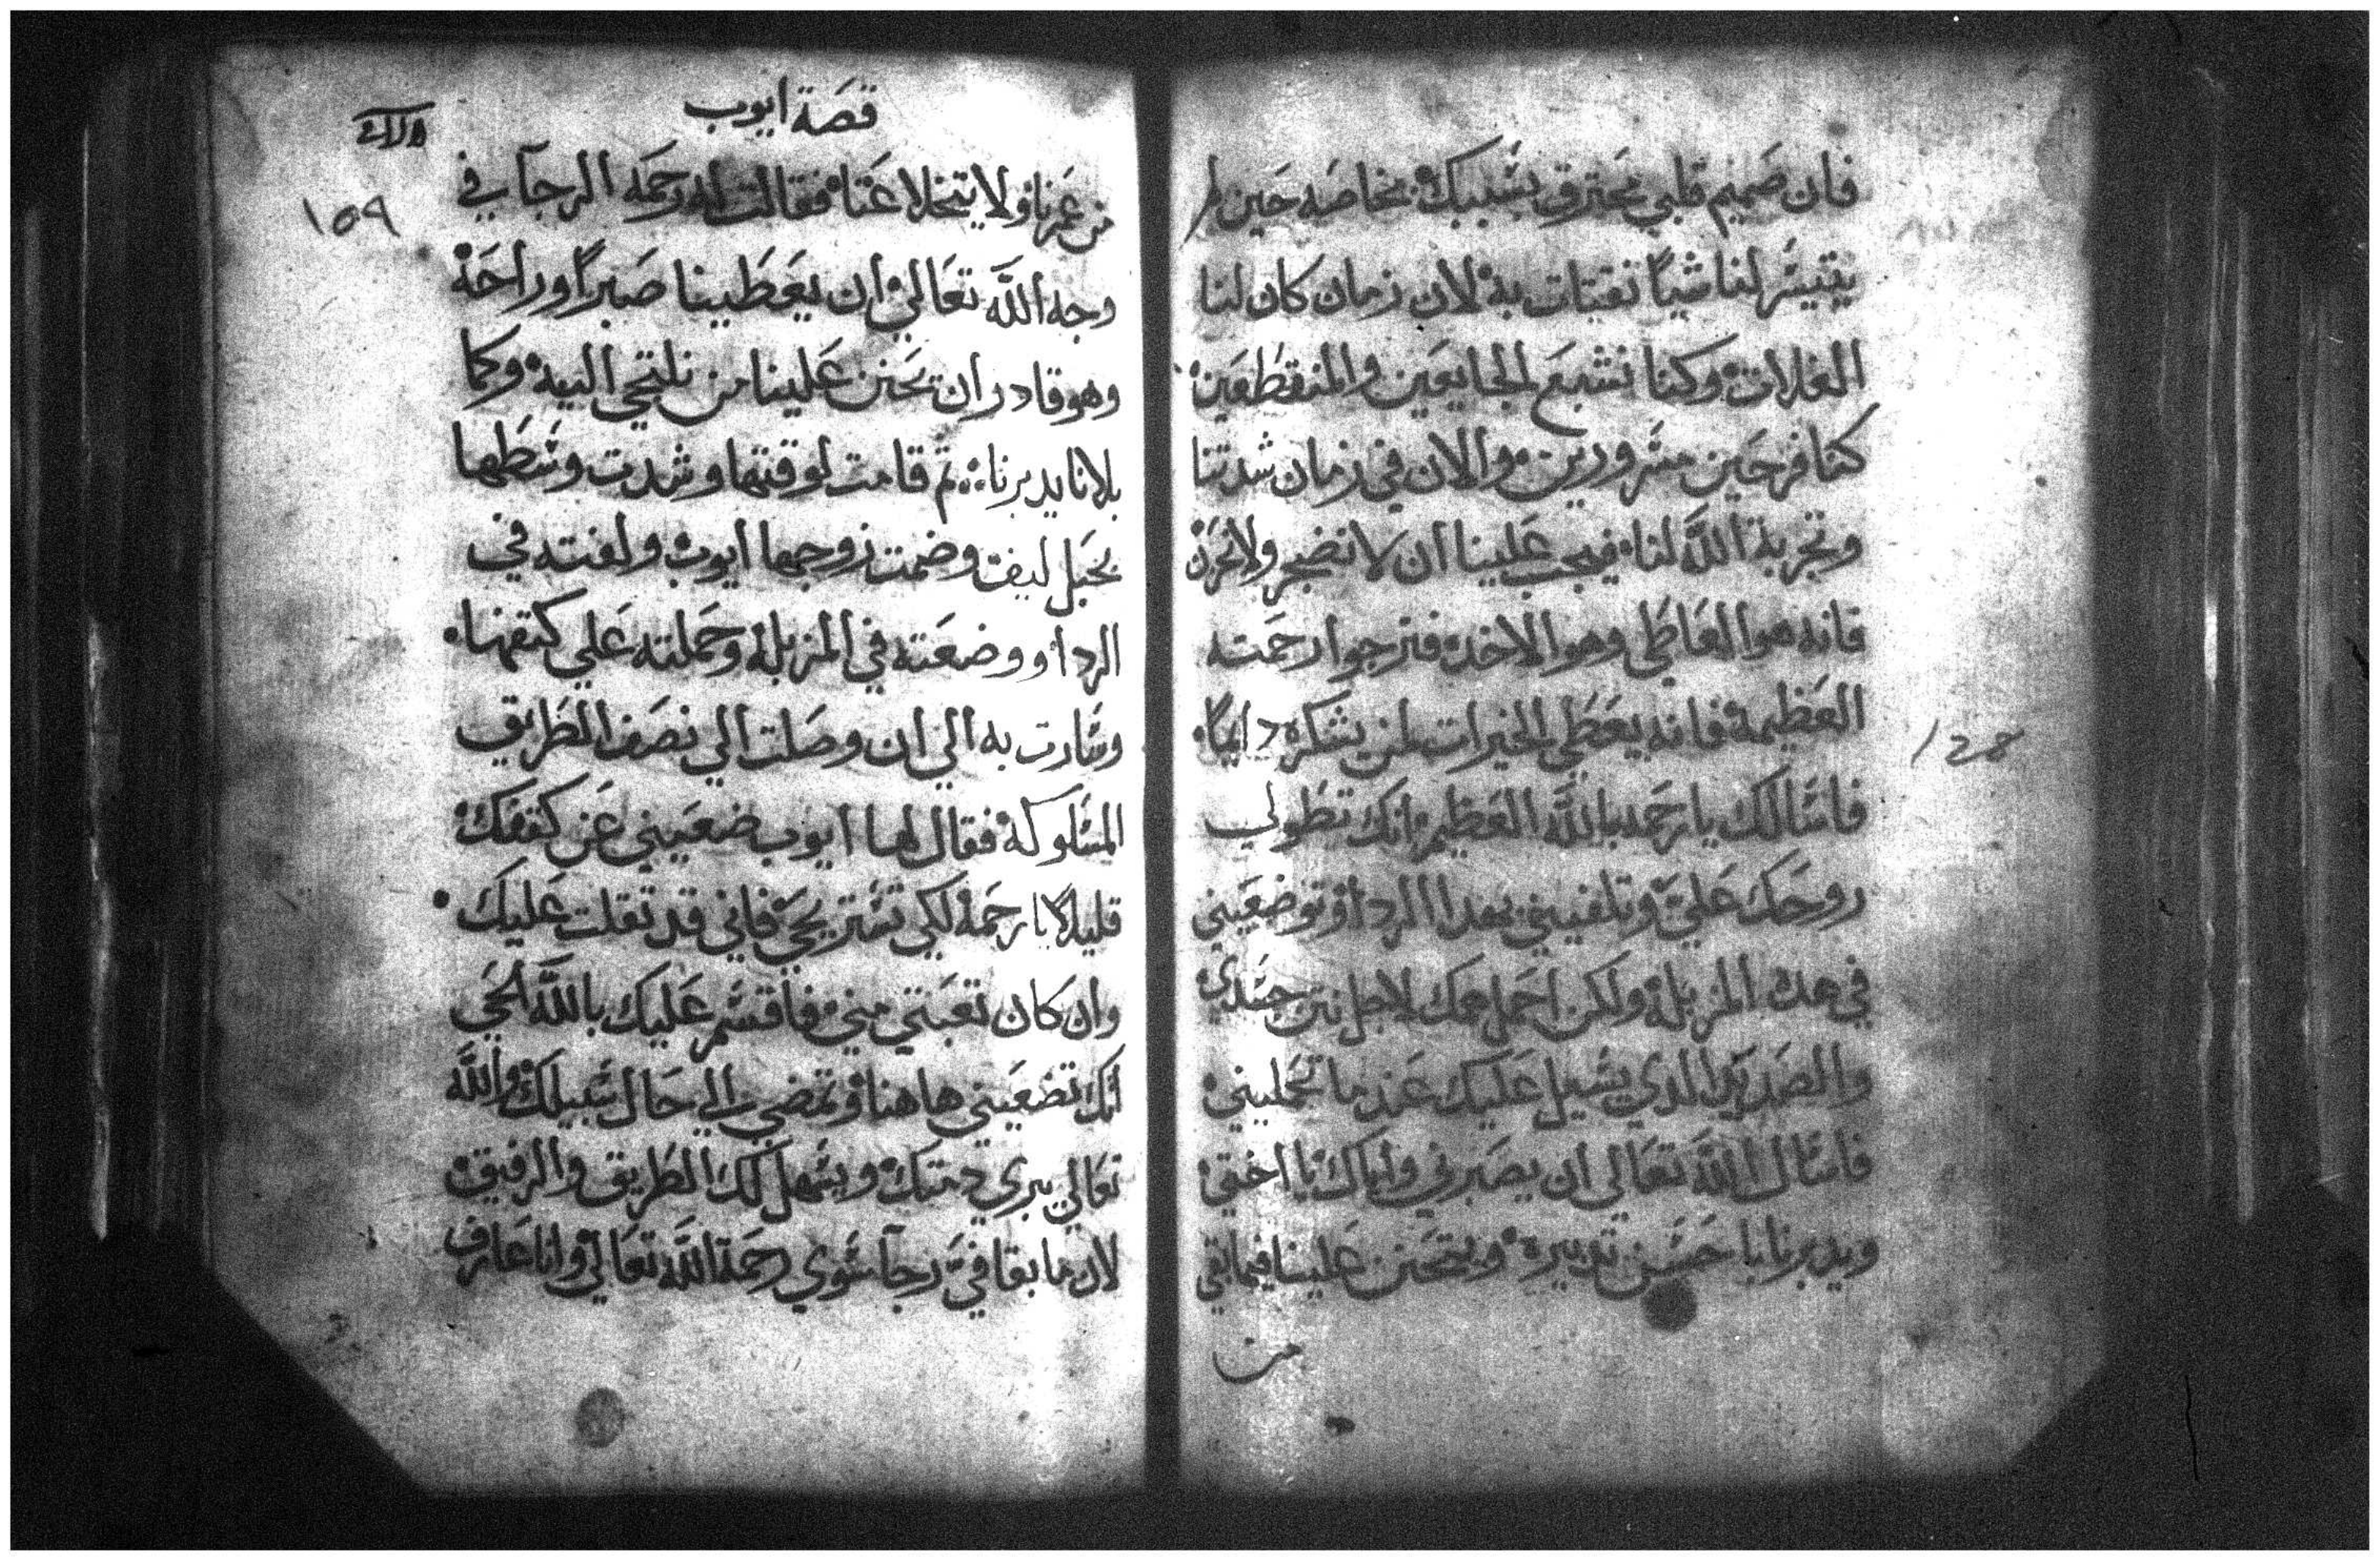 فان صميم قلبي محترق بسببك بخاصه حين لم
يتيسر لنا شياً نقتات به لان زمان كان لنا
الغلات وكنا نشبع الجايعين والمنقطعين
كنا فرحين مسرورين والان في زمان شدتنا
وتجربة الله لنا فيجب علينا ان لا نضجر ولا نحزن
فانه هوا العاطي وهوا الاخد فنترجوا رحمته
العظيمة فانه يعطي الخيرات لمن يشكره دايماً
فاسالك يا رحمه بالله العظيم انك تطولي
روحك عليّ وتلفيني بهدا الردا وتوضعيني
في هده المزبلة ولكن احمل همك لاجل نتن جسدي
والصديد الدي يسيل عليك عند ما تحمليني
فاسال الله تعالى ان يصبرني واياك يا اختي
ويدبرنا باحسن تدبيره ويتحنن علينا فيما بقي
من
قصة ايوب
١٥٩
من عمرنا ولا يتخلا عنا فقالت له رحمه الرجآ في
وجه الله تعالي ان يعطينا صبراً وراحة
وهو قادر ان يحنن علينا من نلتجي اليه وكما
بلانا يدبرنا ثم قامت لوقتها وشدت وسطها
بحبل ليف وضمت زوجها ايوب ولفته في
الردا ووضعته في المزبلة وحملته علي كتفها
وسارت به الي ان وصلت الي نصف الطريق
المسلوكة فقال لها ايوب ضعيني عن كتفك
قليلاً يا رحمة لكي تستريحي فاني قد تقلت عليك
وان كان تعبتي مني فاقسم عليك بالله الحي
انك تضعيني هاهنا وتمضي الي حال سبيلك والله
تعالي يبري دمتك ويسهل لك الطريق والرفيق
لان ما بقا فيّ رجآ سوي رحمة الله تعالي وانا عارف